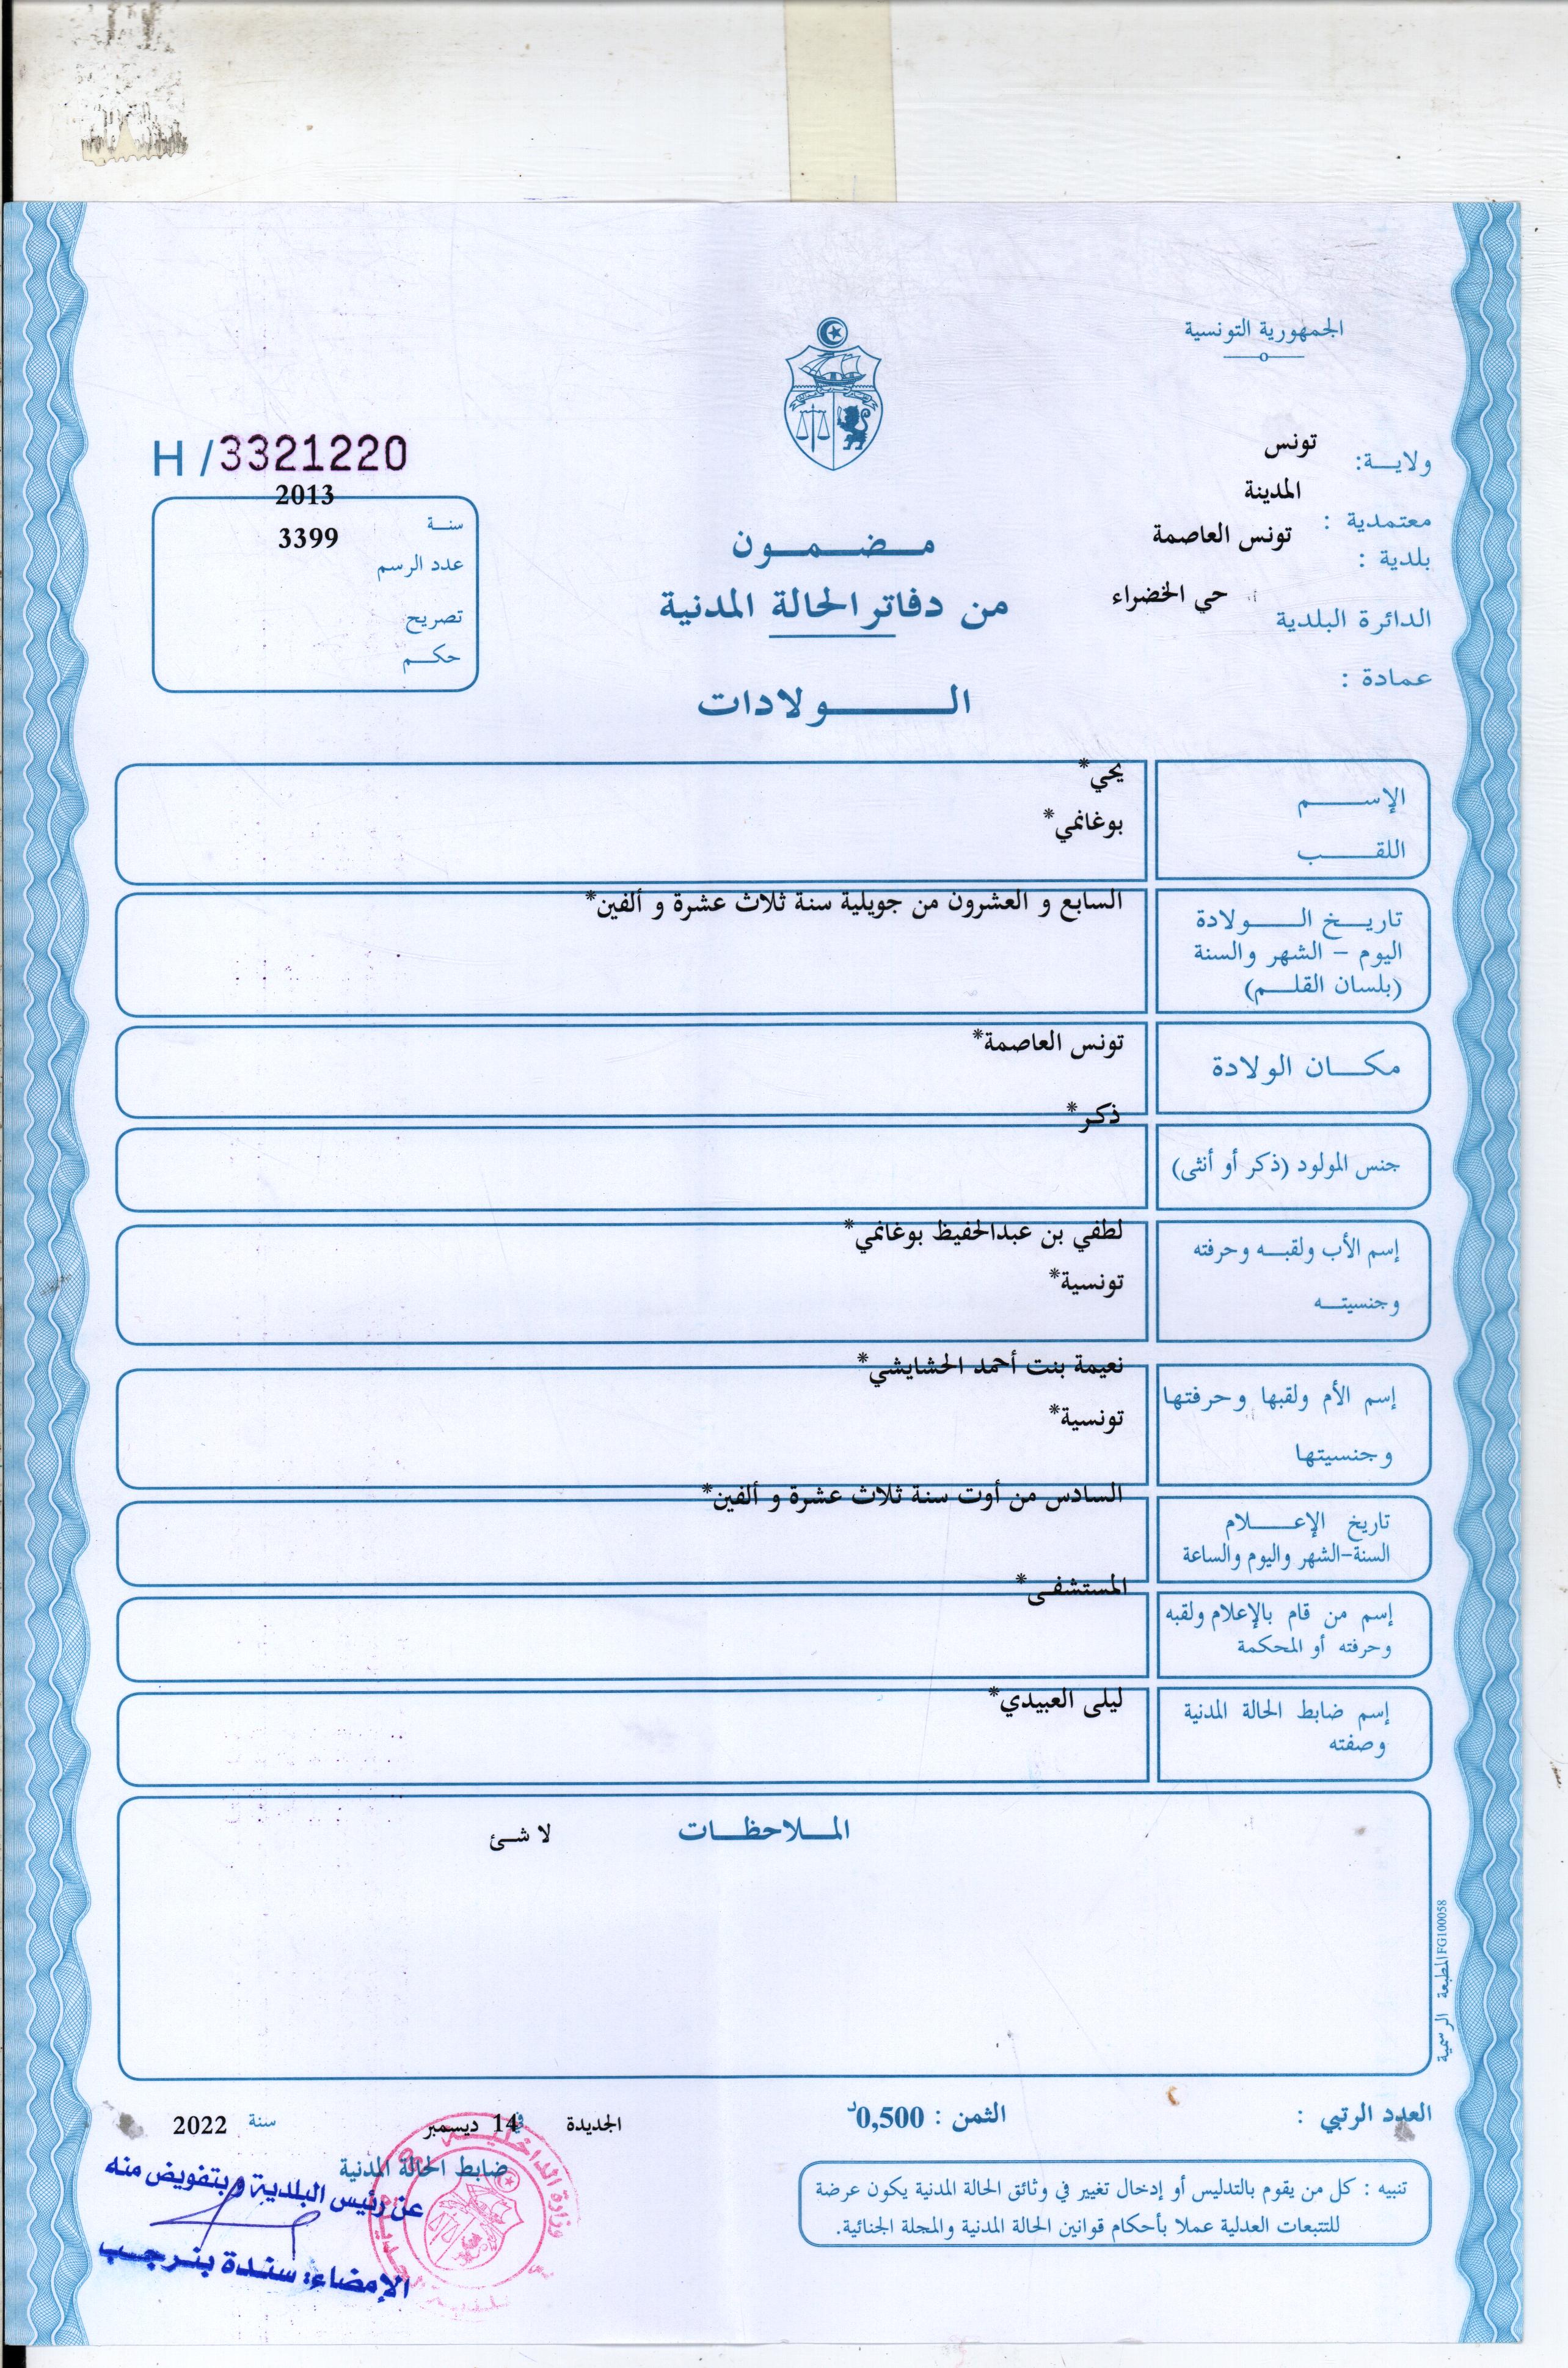 الجمهورية التونسية
ولايـــة: تونس
معتمدية : المدينة
بلدية : تونس العاصمة
الدائرة البلدية حي الخضراء
عمادة :
H / 3321220
سنـــة 2013
عدد الرسم 3399
تصريح
حكـــم
مـــضـــمـــون
من دفاتر الحالة المدنية
الـــــولادات
الإســـــم يحي*
اللقـــــب بوغانمي*
تاريـــخ الـــــولادة السابع و العشرون من جويلية سنة ثلاث عشرة و ألفين*
اليوم – الشهر والسنة
(بلسان القلـــم)
مكـــان الولادة تونس العاصمة*
جنس المولود (ذكر أو أنثى) ذكر*
إسم الأب ولقبـــه وحرفته لطفي بن عبدالحفيظ بوغانمي*
وجنسيتـــه تونسية*
إسم الأم ولقبها وحرفتها نعيمة بنت أحمد الحشايشي*
وجنسيتها تونسية*
تاريخ الإعـــــلام السادس من أوت سنة ثلاث عشرة و ألفين*
السنة-الشهر واليوم والساعة
إسم من قام بالإعلام ولقبه المستشفى*
وحرفته أو المحكمة
إسم ضابط الحالة المدنية ليلى العبيدي*
وصفته
المـــلاحظـــات
لا شئ
المطبعة الرسمية FG100058
العدد الرتبي :
الثمن : 0,500د
الجديدة في 14 ديسمبر سنة 2022
ضابط الحالة المدنية
عن رئيس البلدية و بتفويض منه
الإمضاء: سندة بنرجب
وزارة الداخليـــة
تنبيه : كل من يقوم بالتدليس أو إدخال تغيير في وثائق الحالة المدنية يكون عرضة
للتتبعات العدلية عملا بأحكام قوانين الحالة المدنية والمجلة الجنائية.